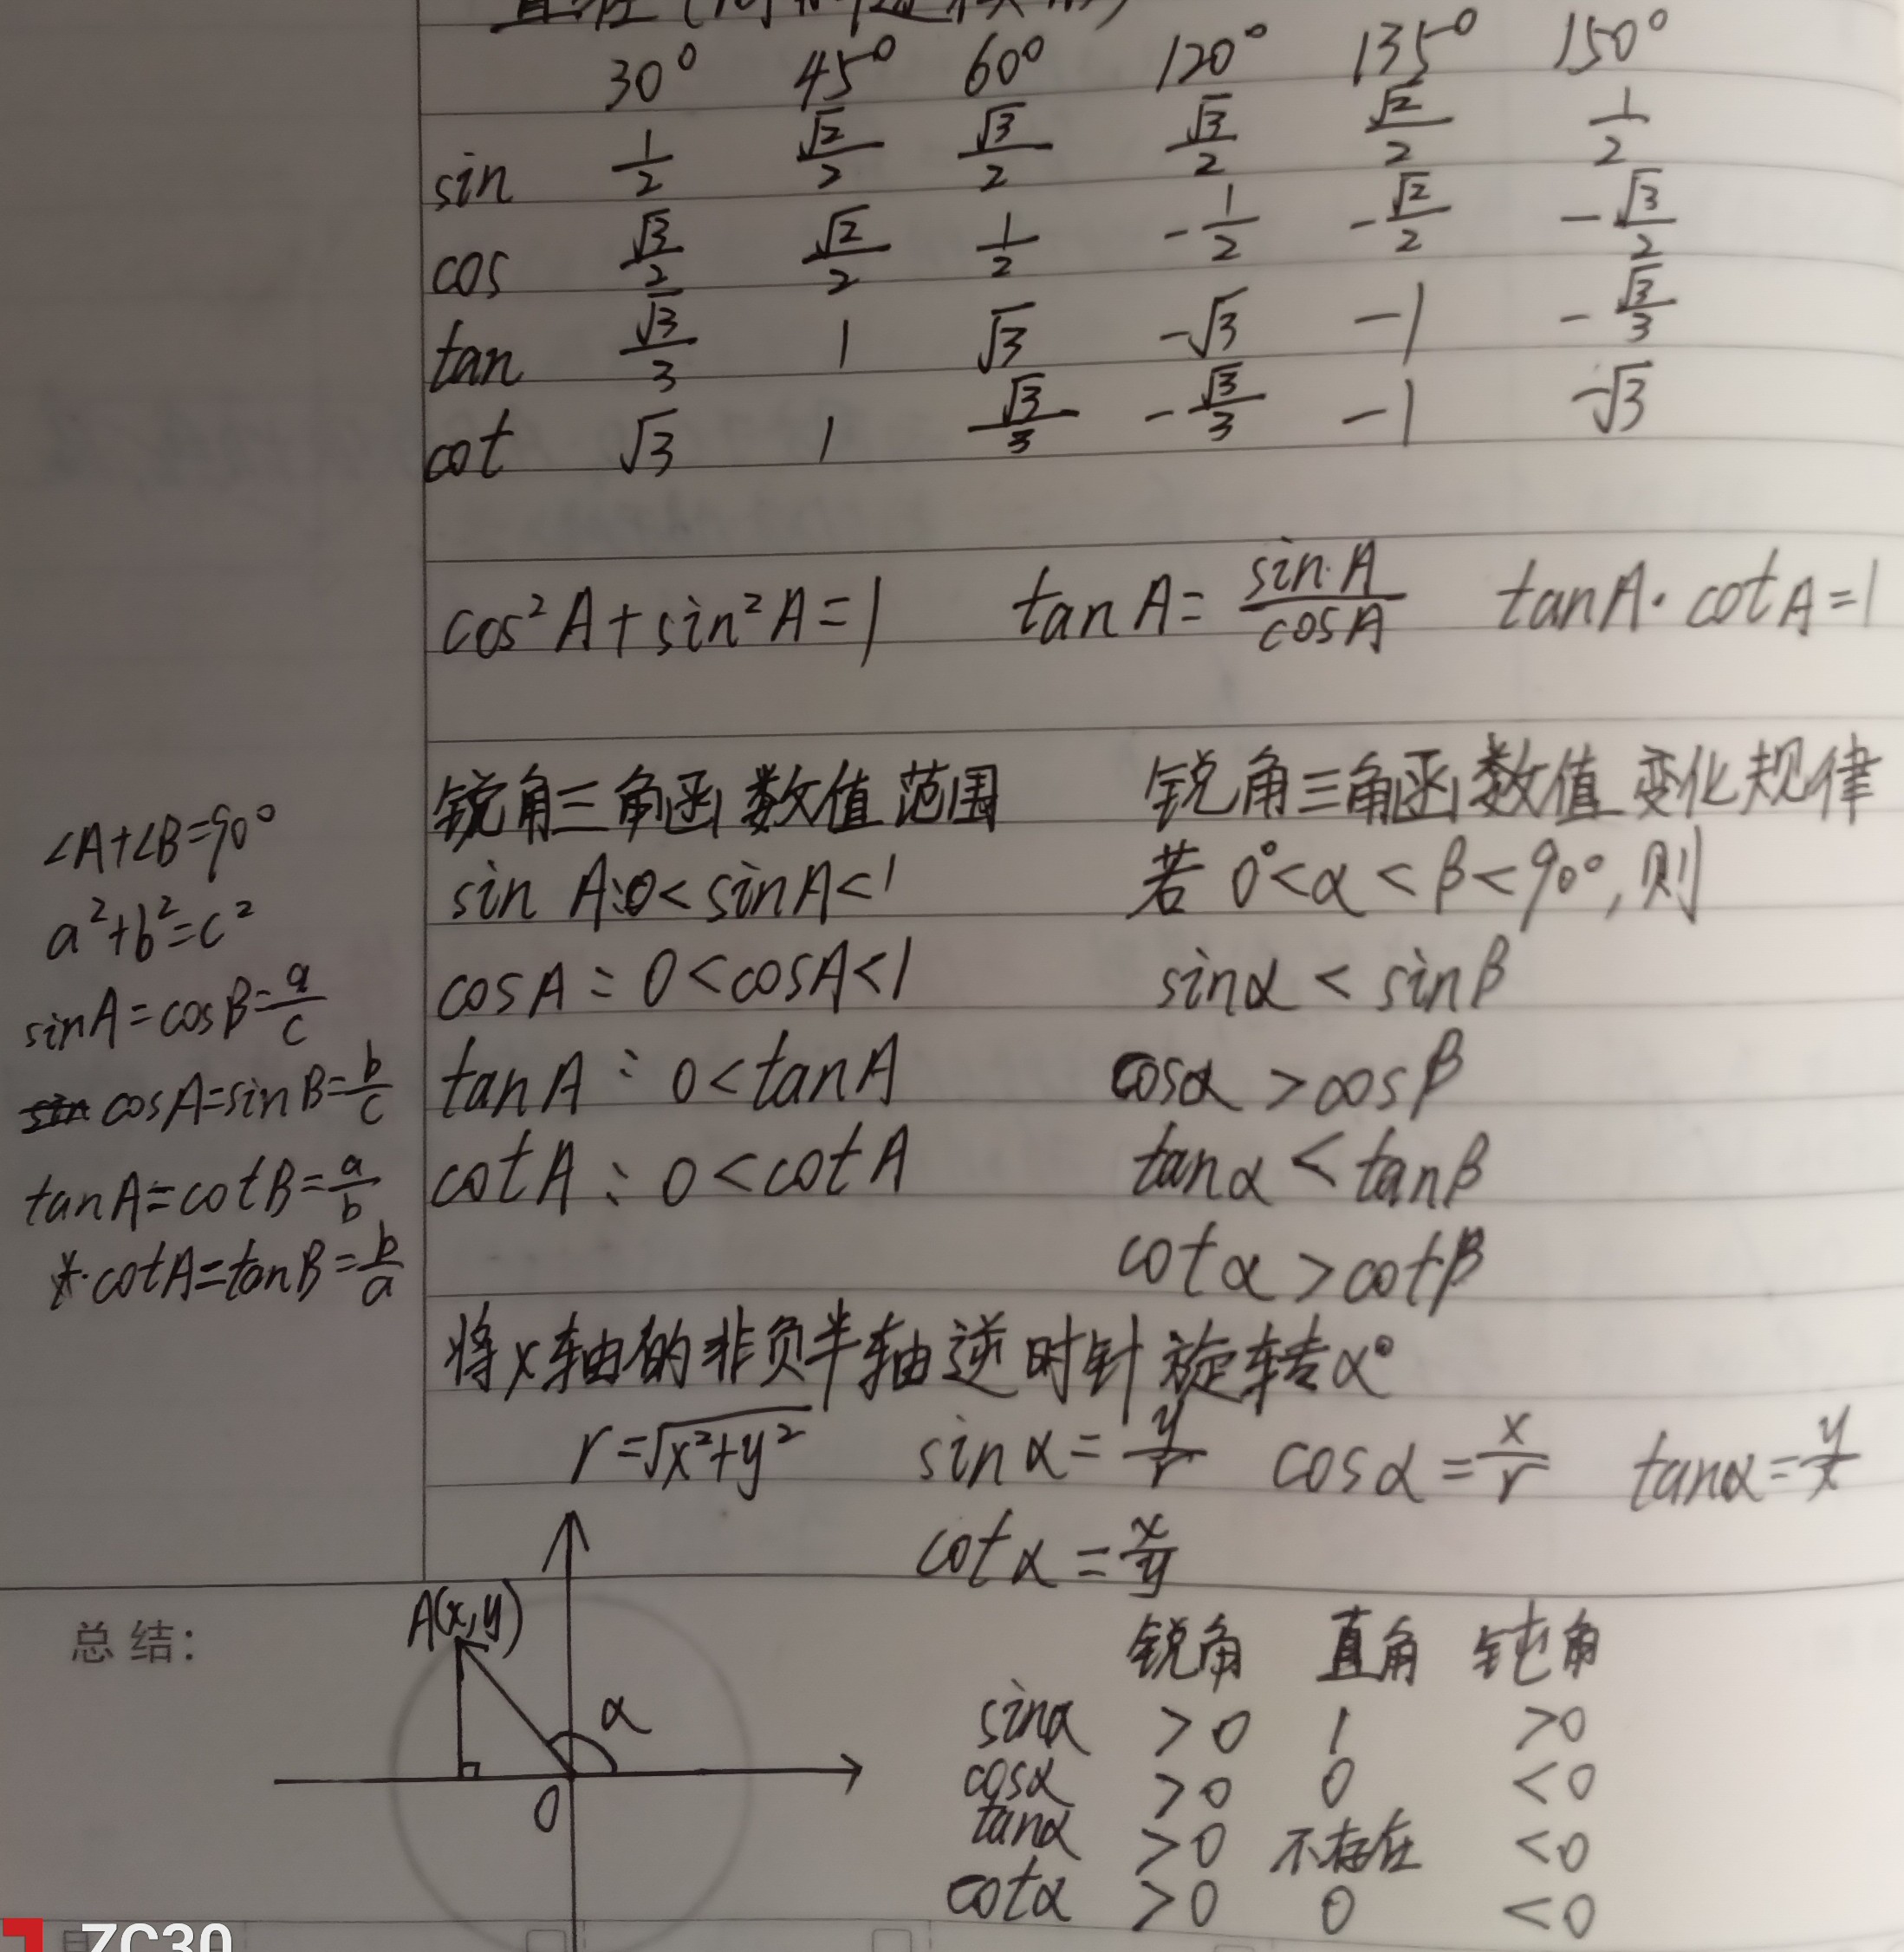 30° 45° 60° 120° 135° 150°
sin 1/2 √2/2 √3/2 √3/2 √2/2 1/2
cos √3/2 √2/2 1/2 -1/2 -√2/2 -√3/2
tan √3/3 1 √3 -√3 -1 -√3/3
cot √3 1 √3/3 -√3/3 -1 -√3
cos²A+sin²A=1 tanA=sinA/cosA tanA·cotA=1
∠A+∠B=90°
a²+b²=c²
sinA=cosB=a/c
cosA=sinB=b/c
tanA=cotB=a/b
cotA=tanB=b/a
锐角三角函数值范围
sin A:0<sinA<1
cosA:0<cosA<1
tanA:0<tanA
cotA:0<cotA
锐角三角函数值变化规律
若0°<α<β<90°,则
sinα<sinβ
cosα>cosβ
tanα<tanβ
cotα>cotβ
将x轴的非负半轴逆时针旋转α°
r=√x²+y² sinα=y/r cosα=x/r tanα=y/x
cotα=x/y
总结:
A(x,y)
α
O
锐角 直角 钝角
sinα >0 1 >0
cosα >0 0 <0
tanα >0 不存在 <0
cotα >0 0 <0
ZC30